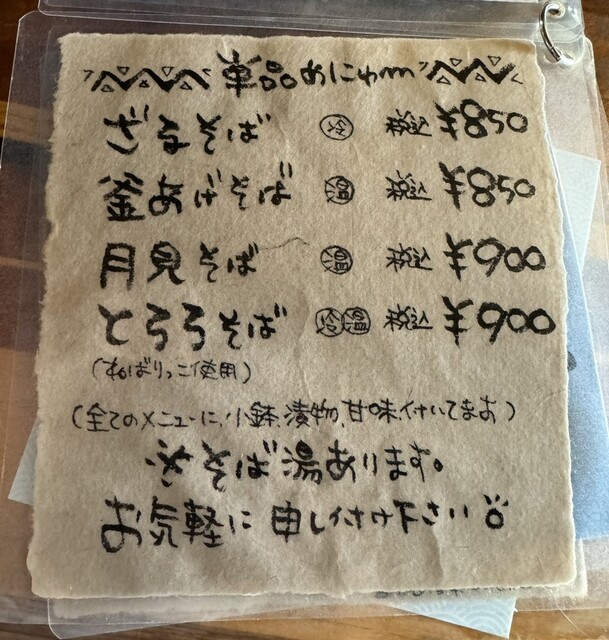 単品めにゅー
ざるそば 冷 税込 ¥850
釜あげそば 温 税込 ¥850
月見そば 温 税込 ¥900
とろろそば 冷 温 税込 ¥900
(ねばりっこ使用)
(全てのメニューに、小鉢、漬物、甘味付いてます)
※そば湯あります。
お気軽に申し付け下さい